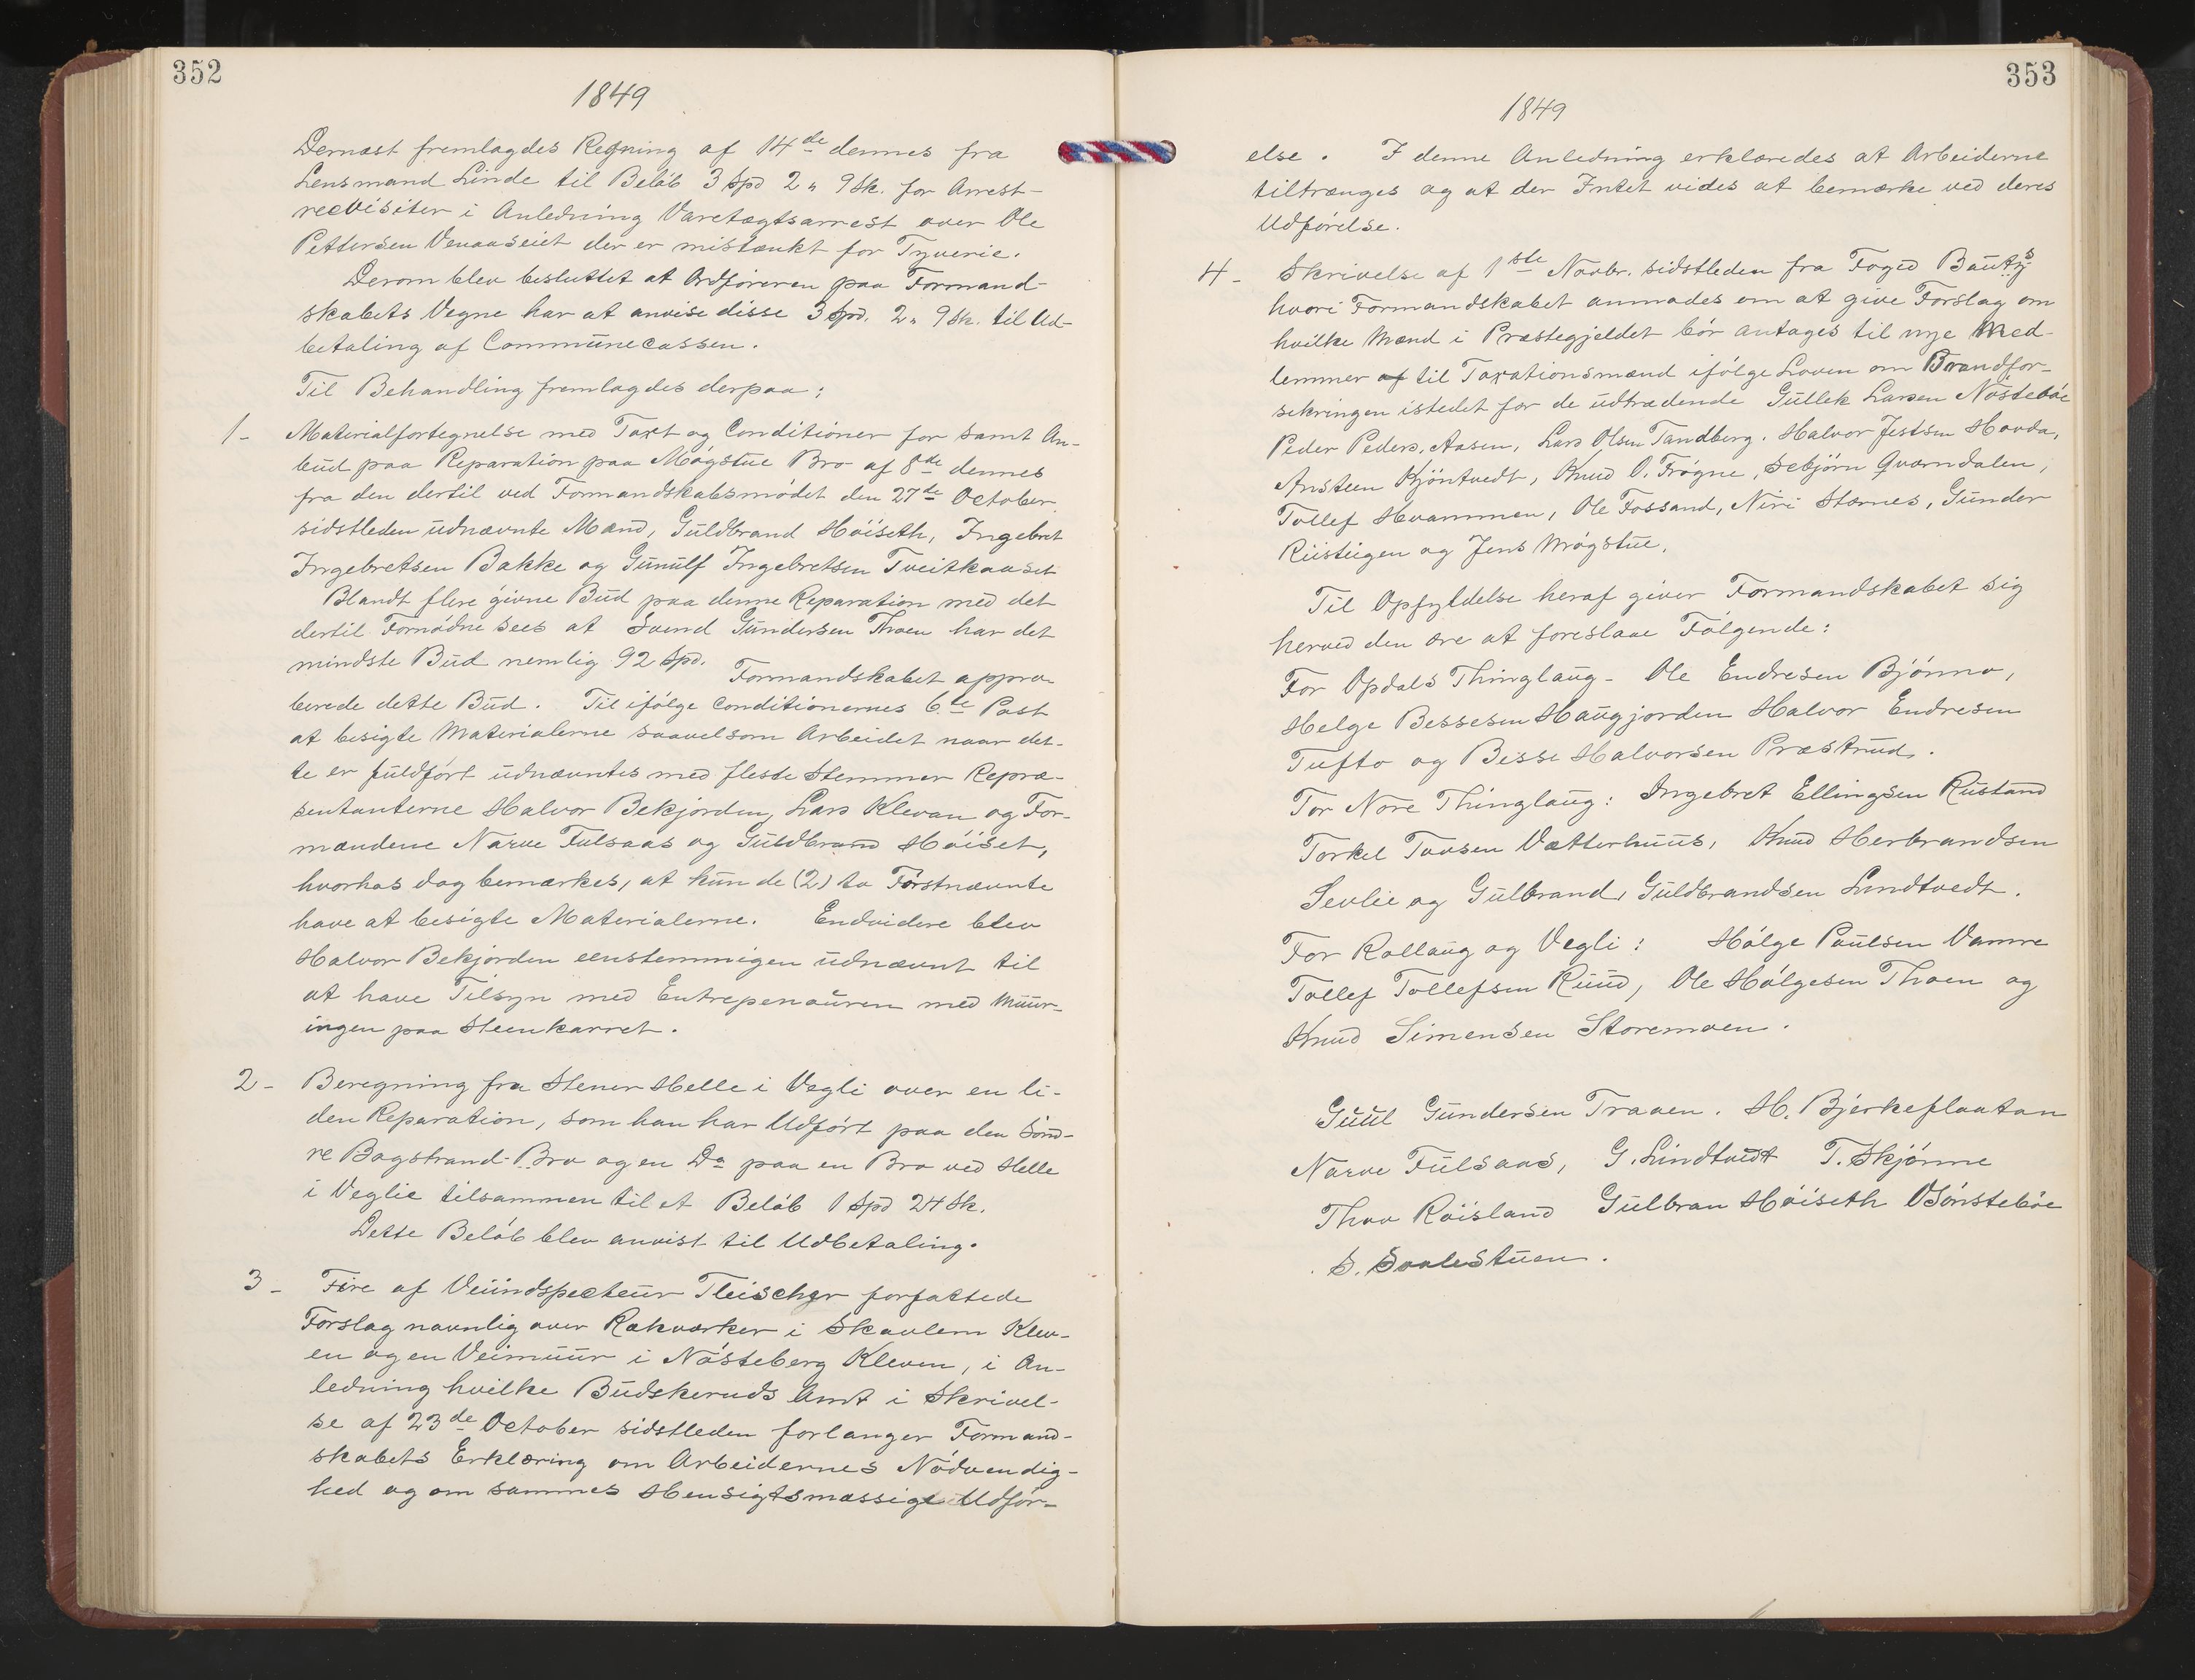 352
1849
Dernæst fremlagdes Regning af 14de dennes fra
Lensmand Linde til Beløb 3 Spd 2 " 9 Sk. for Arrest-
recvisiter i Anledning Varetægtsarrest over Ole
Pettersen Venaaseiet der er mistænkt for Tyverie.
Derom blev besluttet at Ordføreren paa Formand-
skabets Vegne har at anvise disse 3 Spd. 2 " 9 Sk. til Ud-
betaling af Communecassen.
Til Behandling fremlagdes derpaa:
1- Materialfortegnelse med Taxt og Conditioner for samt An-
bud paa Reparation paa Møgstue Bro af 8de dennes
fra den dertil ved Formandskabsmødet den 27de October
sidstleden udnævnte Mænd, Guldbrand Høiseth, Ingebret
Ingebretsen Bakke og Gunulf Ingebretsen Tveitkaaset
Blandt flere givne Bud paa denne Reparation med det
dertil Fornødne sees at Svend Gundersen Thoen har det
mindste Bud nemlig 92 Spd. Formandskabet appro-
berede dette Bud. Til ifølge Conditionernes 6te Post
at besigte Materialerne saavelsom Arbeidet naar det-
te er fuldført udnævntes med fleste Stemmer Repræ-
sentanterne Halvor Bekjorden, Lars Klevan og For-
mændene Narve Fulsaas og Guldbrand Høiset,
hvorhos dog bemærkes, at kun de (2) to Førstnævnte
have at besigte Materialerne. Endvidere blev
Halvor Bekjorden eenstemmigen udnævnt til
at have Tilsyn med Entrepenøuren med Muur-
ingen paa Steenkarret.
2- Beregning fra Stener Helle i Vegli over en li-
den Reparation, som han har Udført paa den Sønd-
re Bogstrand-Bro og en Do paa en Bro ved Helle
i Veglie tilsammen til et Beløb 1 Spd 24 Sk.
Dette Beløb blev anvist til Udbetaling.
3- Fire af Veiindspecteur Fleischer forfattede
Forslag navnlig over Rækværker i Skavlem Klev-
en og en Veimuur i Nøsteberg Kleven, i An-
ledning hvilke Budskeruds Amt i Skrivel-
se af 23de October sidstleden forlanger Formand-
skabets Erklæring om Arbeidernes Nødvendig-
hed og om sammes Hensigtsmæssige Udfør-
353
1849
else. I denne Anledning erklæredes at Arbeiderne
tiltrænges og at der Intet vides at bemærke ved deres
Udførelse.
4- Skrivelse af 1ste Novbr. sidstleden fra Foged Bautz
hvori Formandskabet anmodes om at give Forslag om
hvilke Mænd i Præstegjeldet bør antages til nye Med-
lemmer af til Taxationsmænd ifølge Loven om Brandfor-
sikringen istedet for de udtrædende Gullek Larsen Nøstebøe
Peder Peders. Aasen, Lars Olsen Tandberg. Halvor Jestsen Hovda,
Ansteen Kjöntvedt, Knud O. Frøgne, Sebjörn Qværndalen,
Tollef Hvammen, Ole Fossand, Niri Stærnes, Gunder
Ruistuen og Jens Møgstue.
Til Opfyldelse heraf giver Formandskabet sig
herved den ære at foreslaae Følgende:
For Opdals Thinglaug- Ole Endresen Bjönno,
Helge Bessesen Haugjorden Halvor Endresen
Tufto og Besse Halvorsen Præstrud.
For Nore Thinglaug: Ingebret Ellingsen Rustand
Torkel Tovsen Vætterhuus, Knud Herbrandsen
Sevlie og Gulbrand, Guldbrandsen Lundtvedt.
For Rollaug og Vegli: Hølge Paulsen Vamre
Tollef Tollefsen Ruud, Ole Hølgesen Thoen og
Knud Simensen Storemoen.
Guul Gundersen Traaen. H. Bjerkeflaatan
Narve Fulsaas, G. Lindtvedt T. Skjønne
Thov Røisland Gulbran Høiseth OJønstebøe
S. Saalestuen.